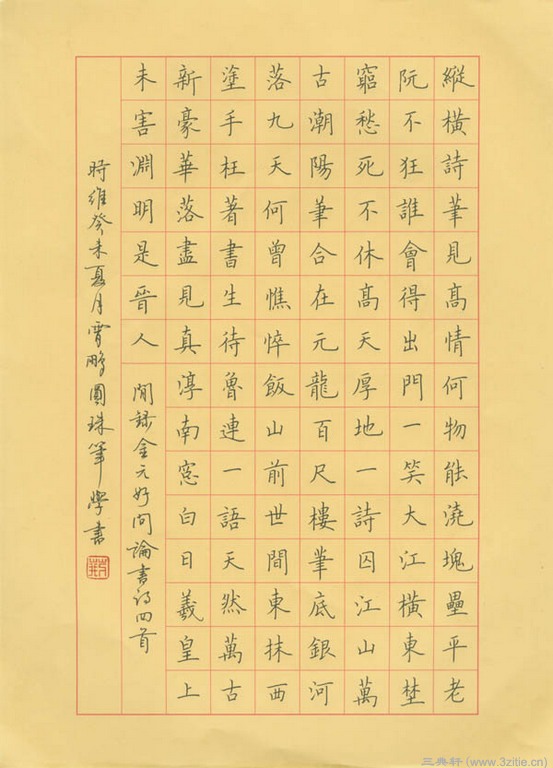 縱橫詩筆見髙情何物能澆塊壘平老
阮不狂誰會得出門一笑大江橫東埜
窮愁死不休髙天厚地一詩囚江山萬
古潮陽筆合在元龍百尺樓筆底銀河
落九天何曾憔悴飯山前世間東抹西
塗手枉著書生待魯連一語天然萬古
新豪華落盡見真淳南窓白日羲皇上
未害淵明是晉人 閒録金元好问論書诗四首
時維癸未夏月霄鵬圓珠筆學書
三典轩(www.3zitie.cn)